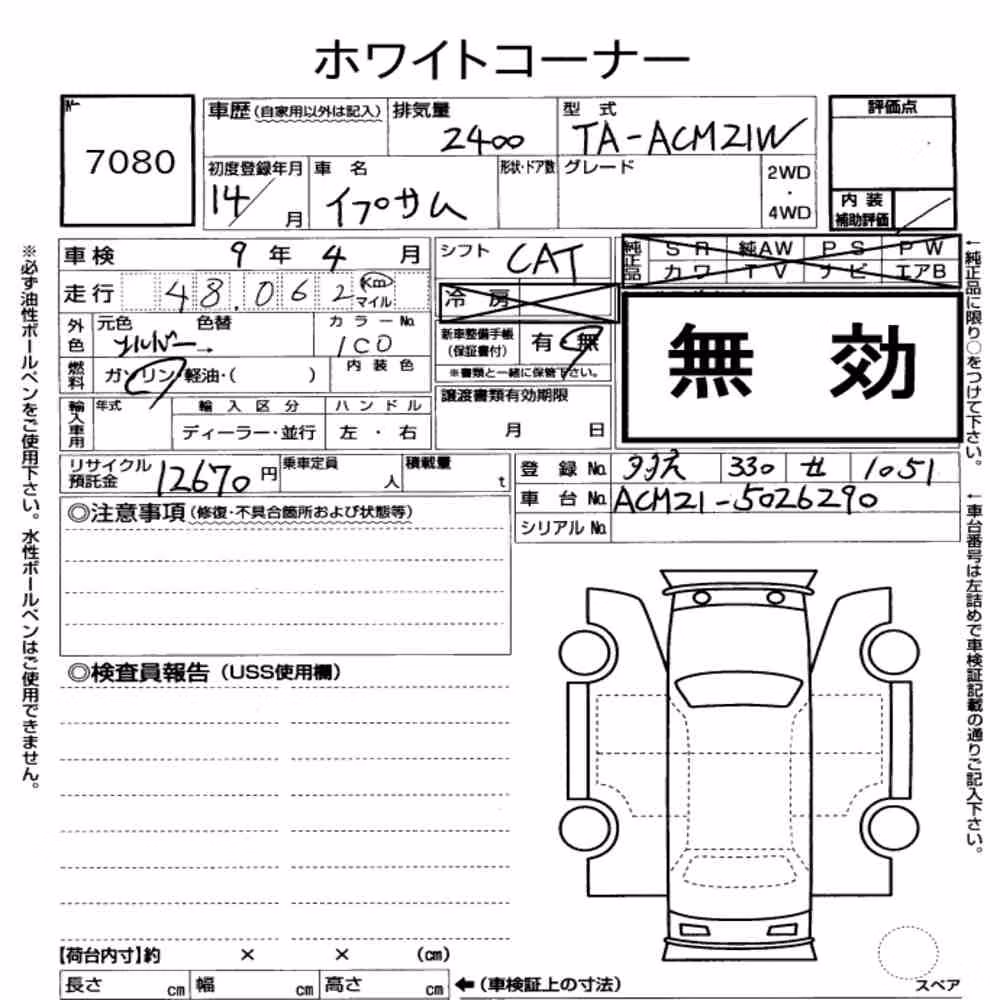 ホワイトコーナー
7080
車歴(自家用以外は記入)
排気量
2400
型 式
TA-ACM21W
評価点
初度登録年月
14/ 月
車 名
イプサム
形状・ドア数
グレード
2WD
・
4WD
内 装
補助評価
車検 9 年 4 月
シフト CAT
純正品
SR 純AW PS PW
カワ TV ナビ エアB
走行 48.062 Km
マイル
冷 房
無 効
外色
元色 色替
シルバー→
カラーNo.
1C0
新車整備手帳
(保証書付)
有・無
※書類と一緒に保管下さい。
燃料
ガソリン・軽油・( )
内 装 色
譲渡書類有効期限
月 日
輸入車用
年式
輸 入 区 分
ディーラー・並行
ハ ン ド ル
左 ・ 右
リサイクル
預託金
12670円
乗車定員
人
積載量
t
登 録 No. 330 せ 1051
車 台 No. ACM21-5026290
シリアル No.
◎注意事項(修復・不具合箇所および状態等)
◎検査員報告(USS使用欄)
【荷台内寸】約 × × (cm)
長さ cm 幅 cm 高さ cm ←(車検証上の寸法)
スペア
※必ず油性ボールペンをご使用下さい。水性ボールペンはご使用できません。
←純正品に限り○をつけて下さい。
←車台番号は左詰めで車検証記載の通りご記入下さい。